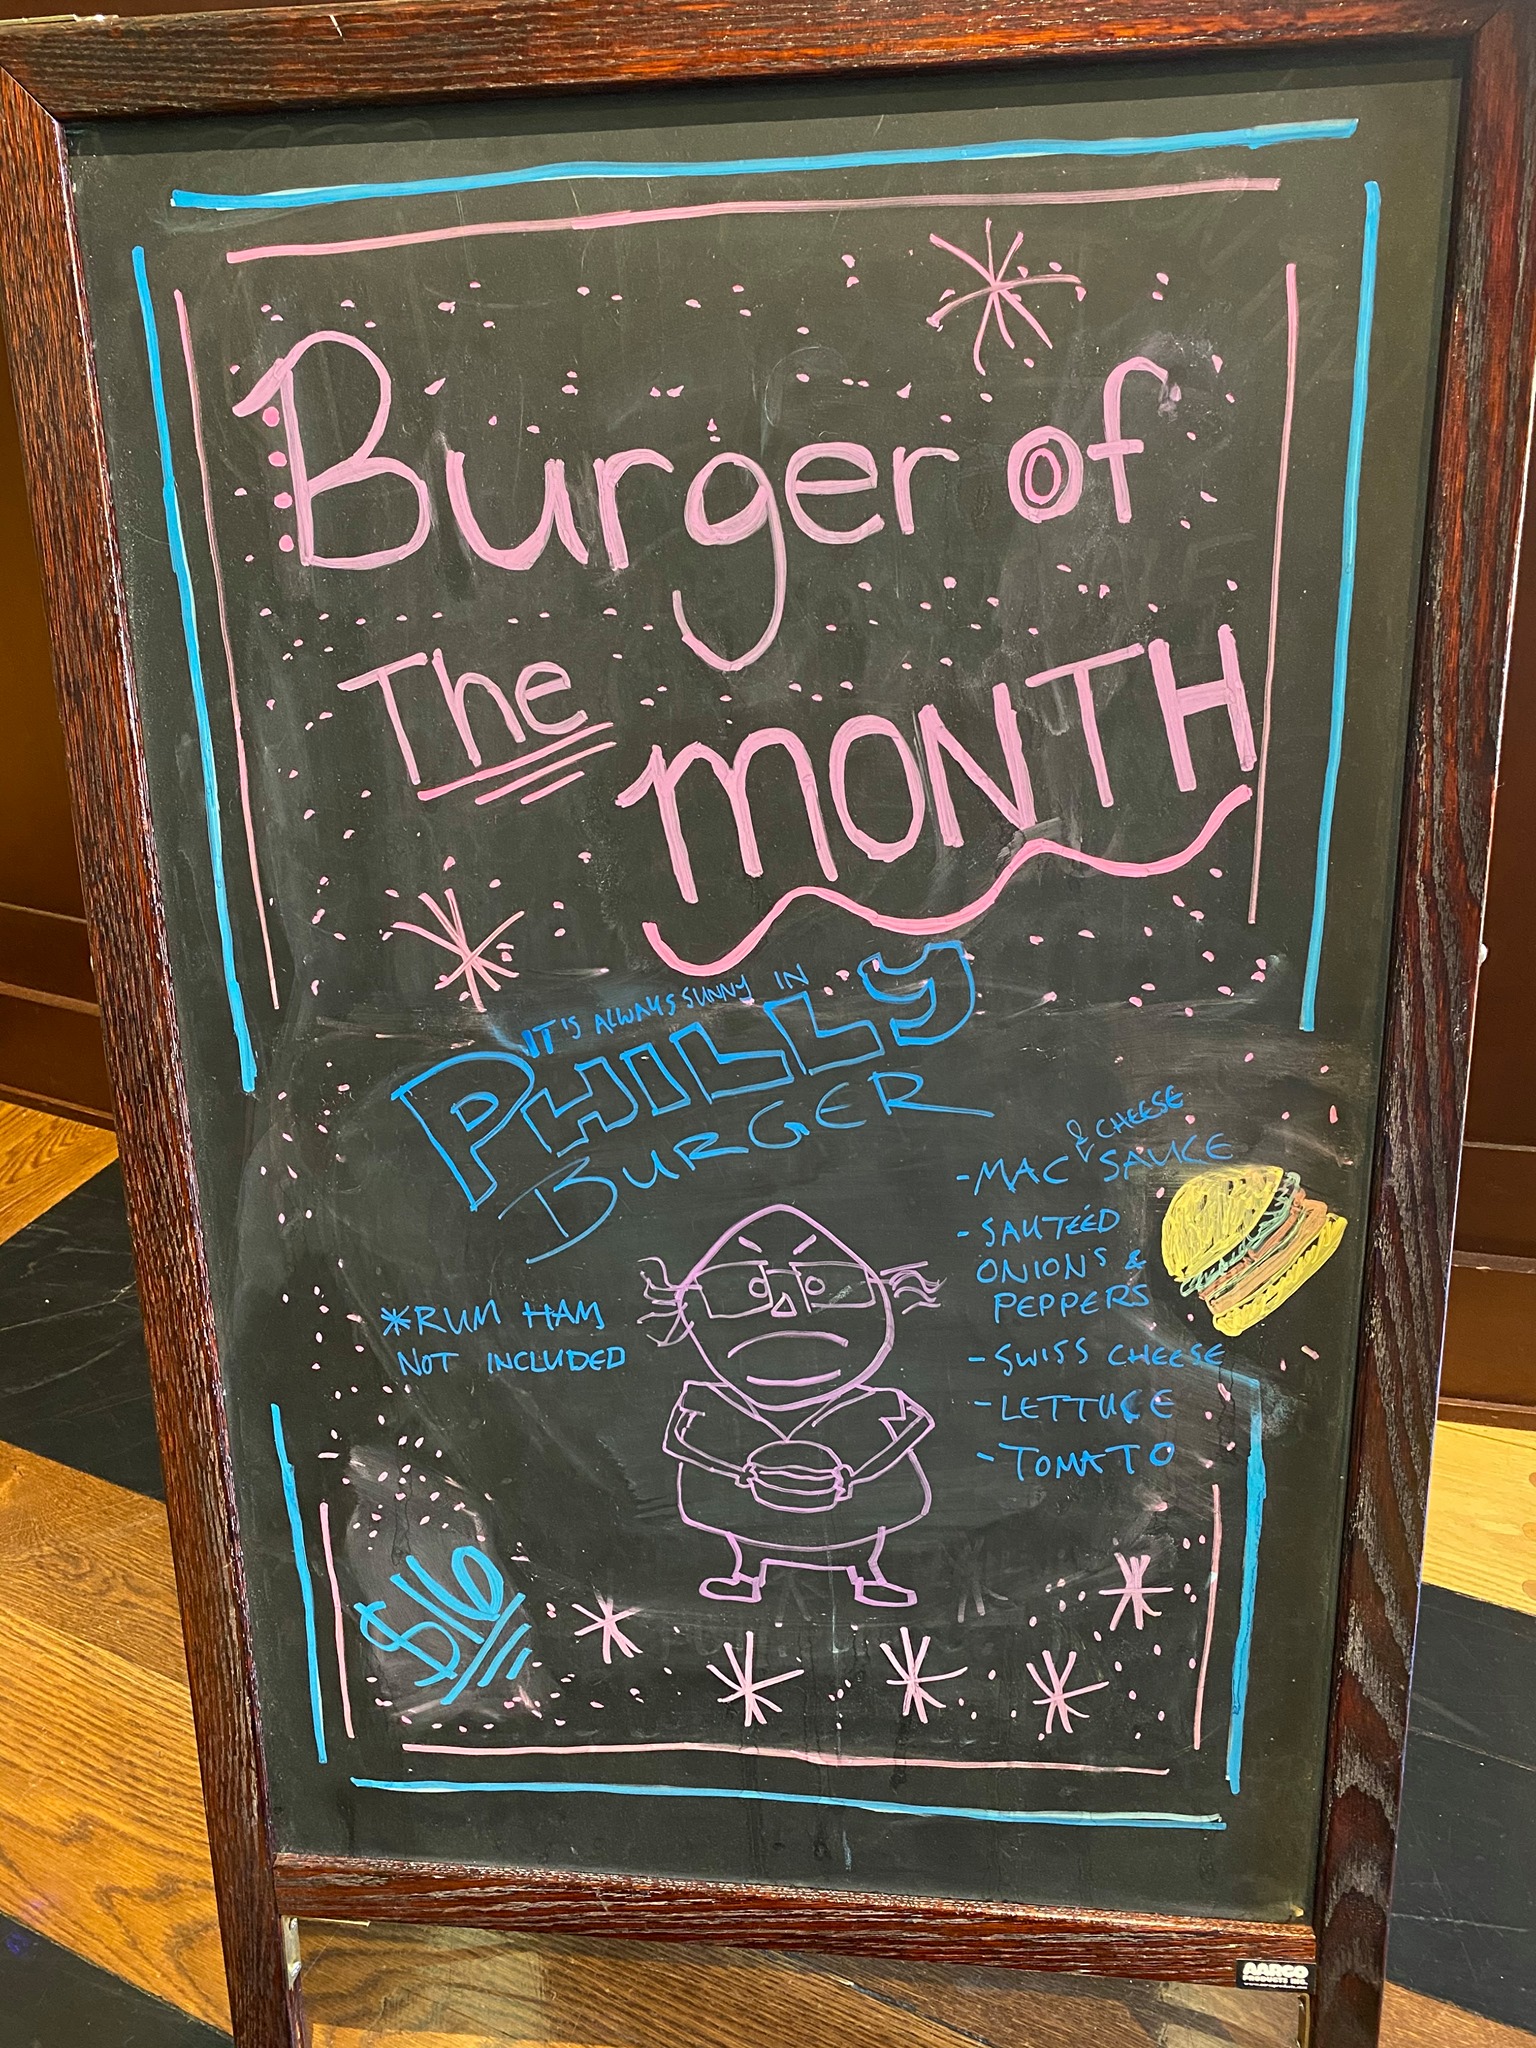 Burger of
The
MONTH
IT'S ALWAYS SUNNY IN
PHILLY
BURGER
- MAC & CHEESE SAUCE
- SAUTÉED
ONIONS &
PEPPERS
- SWISS CHEESE
- LETTUCE
- TOMATO
*RUM HAM
NOT INCLUDED
$16
AARCO
PRODUCTS INC.